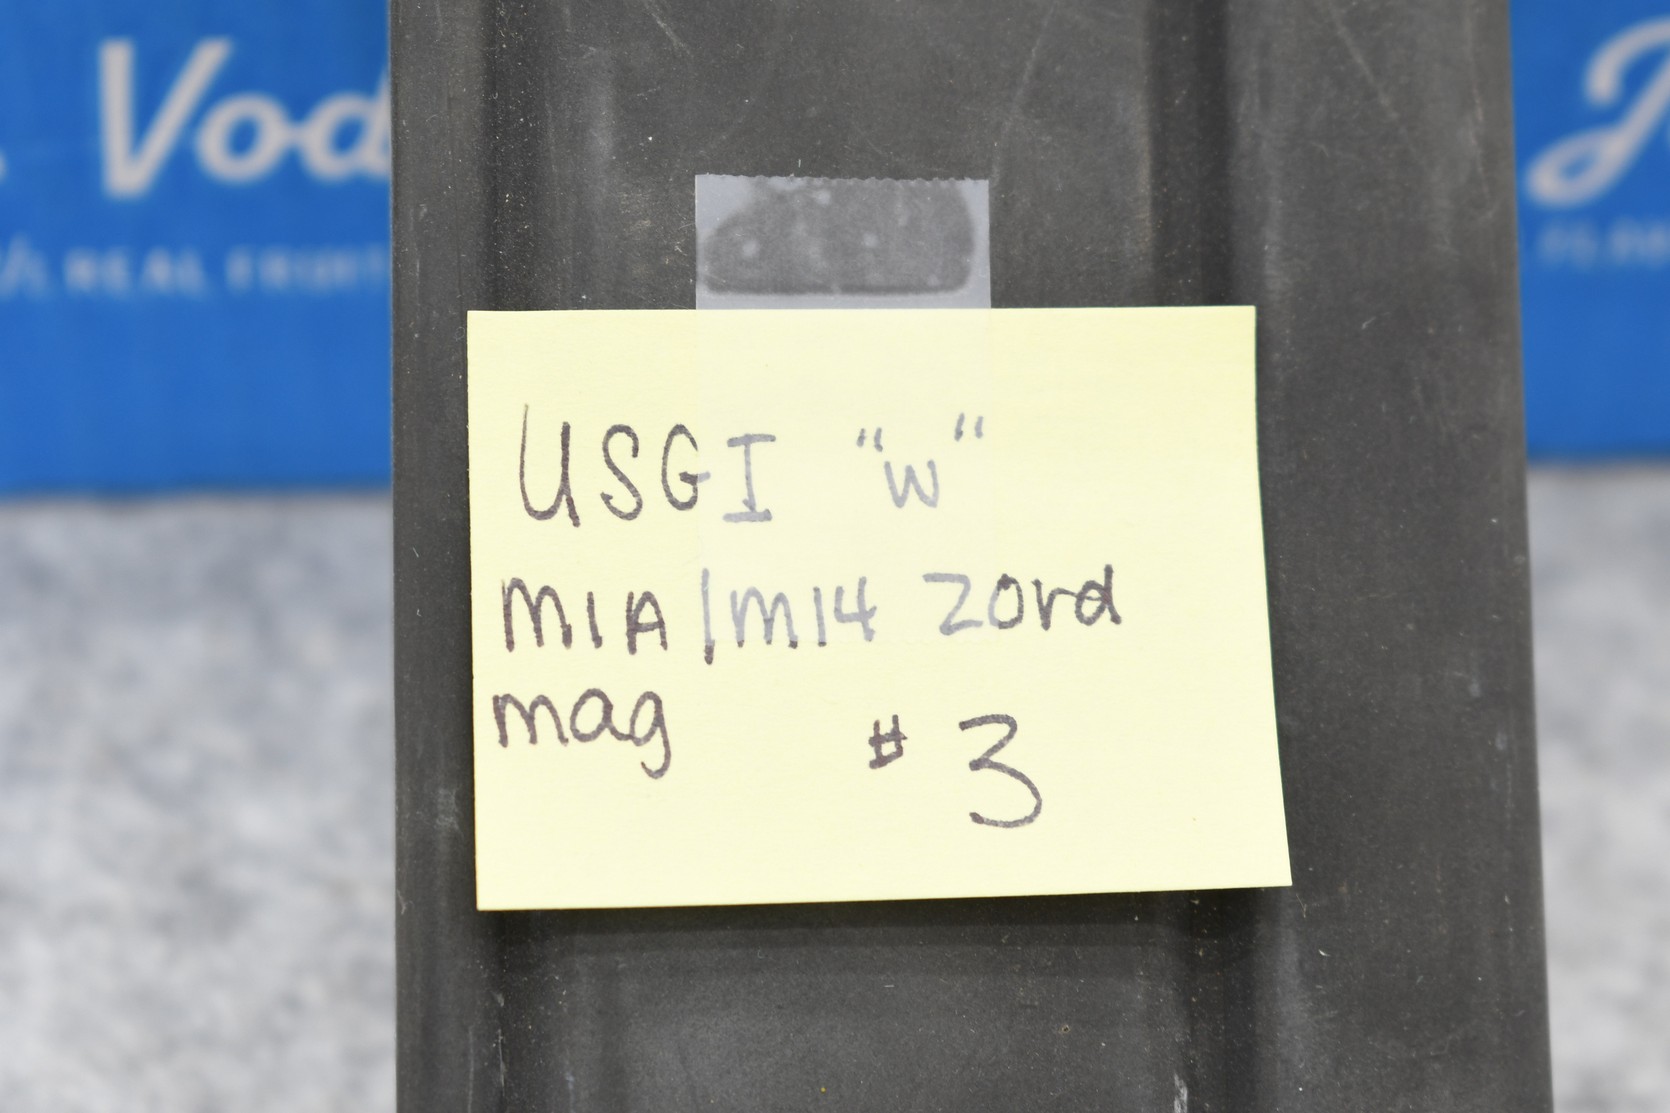 Vod
REAL FRUIT
USGI "W"
M1A/M14 20rd
mag #3